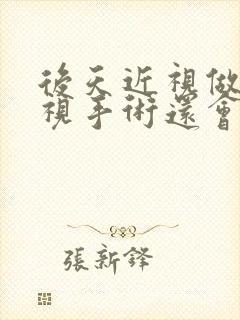 後天近視做
視手術還會
張新鋒